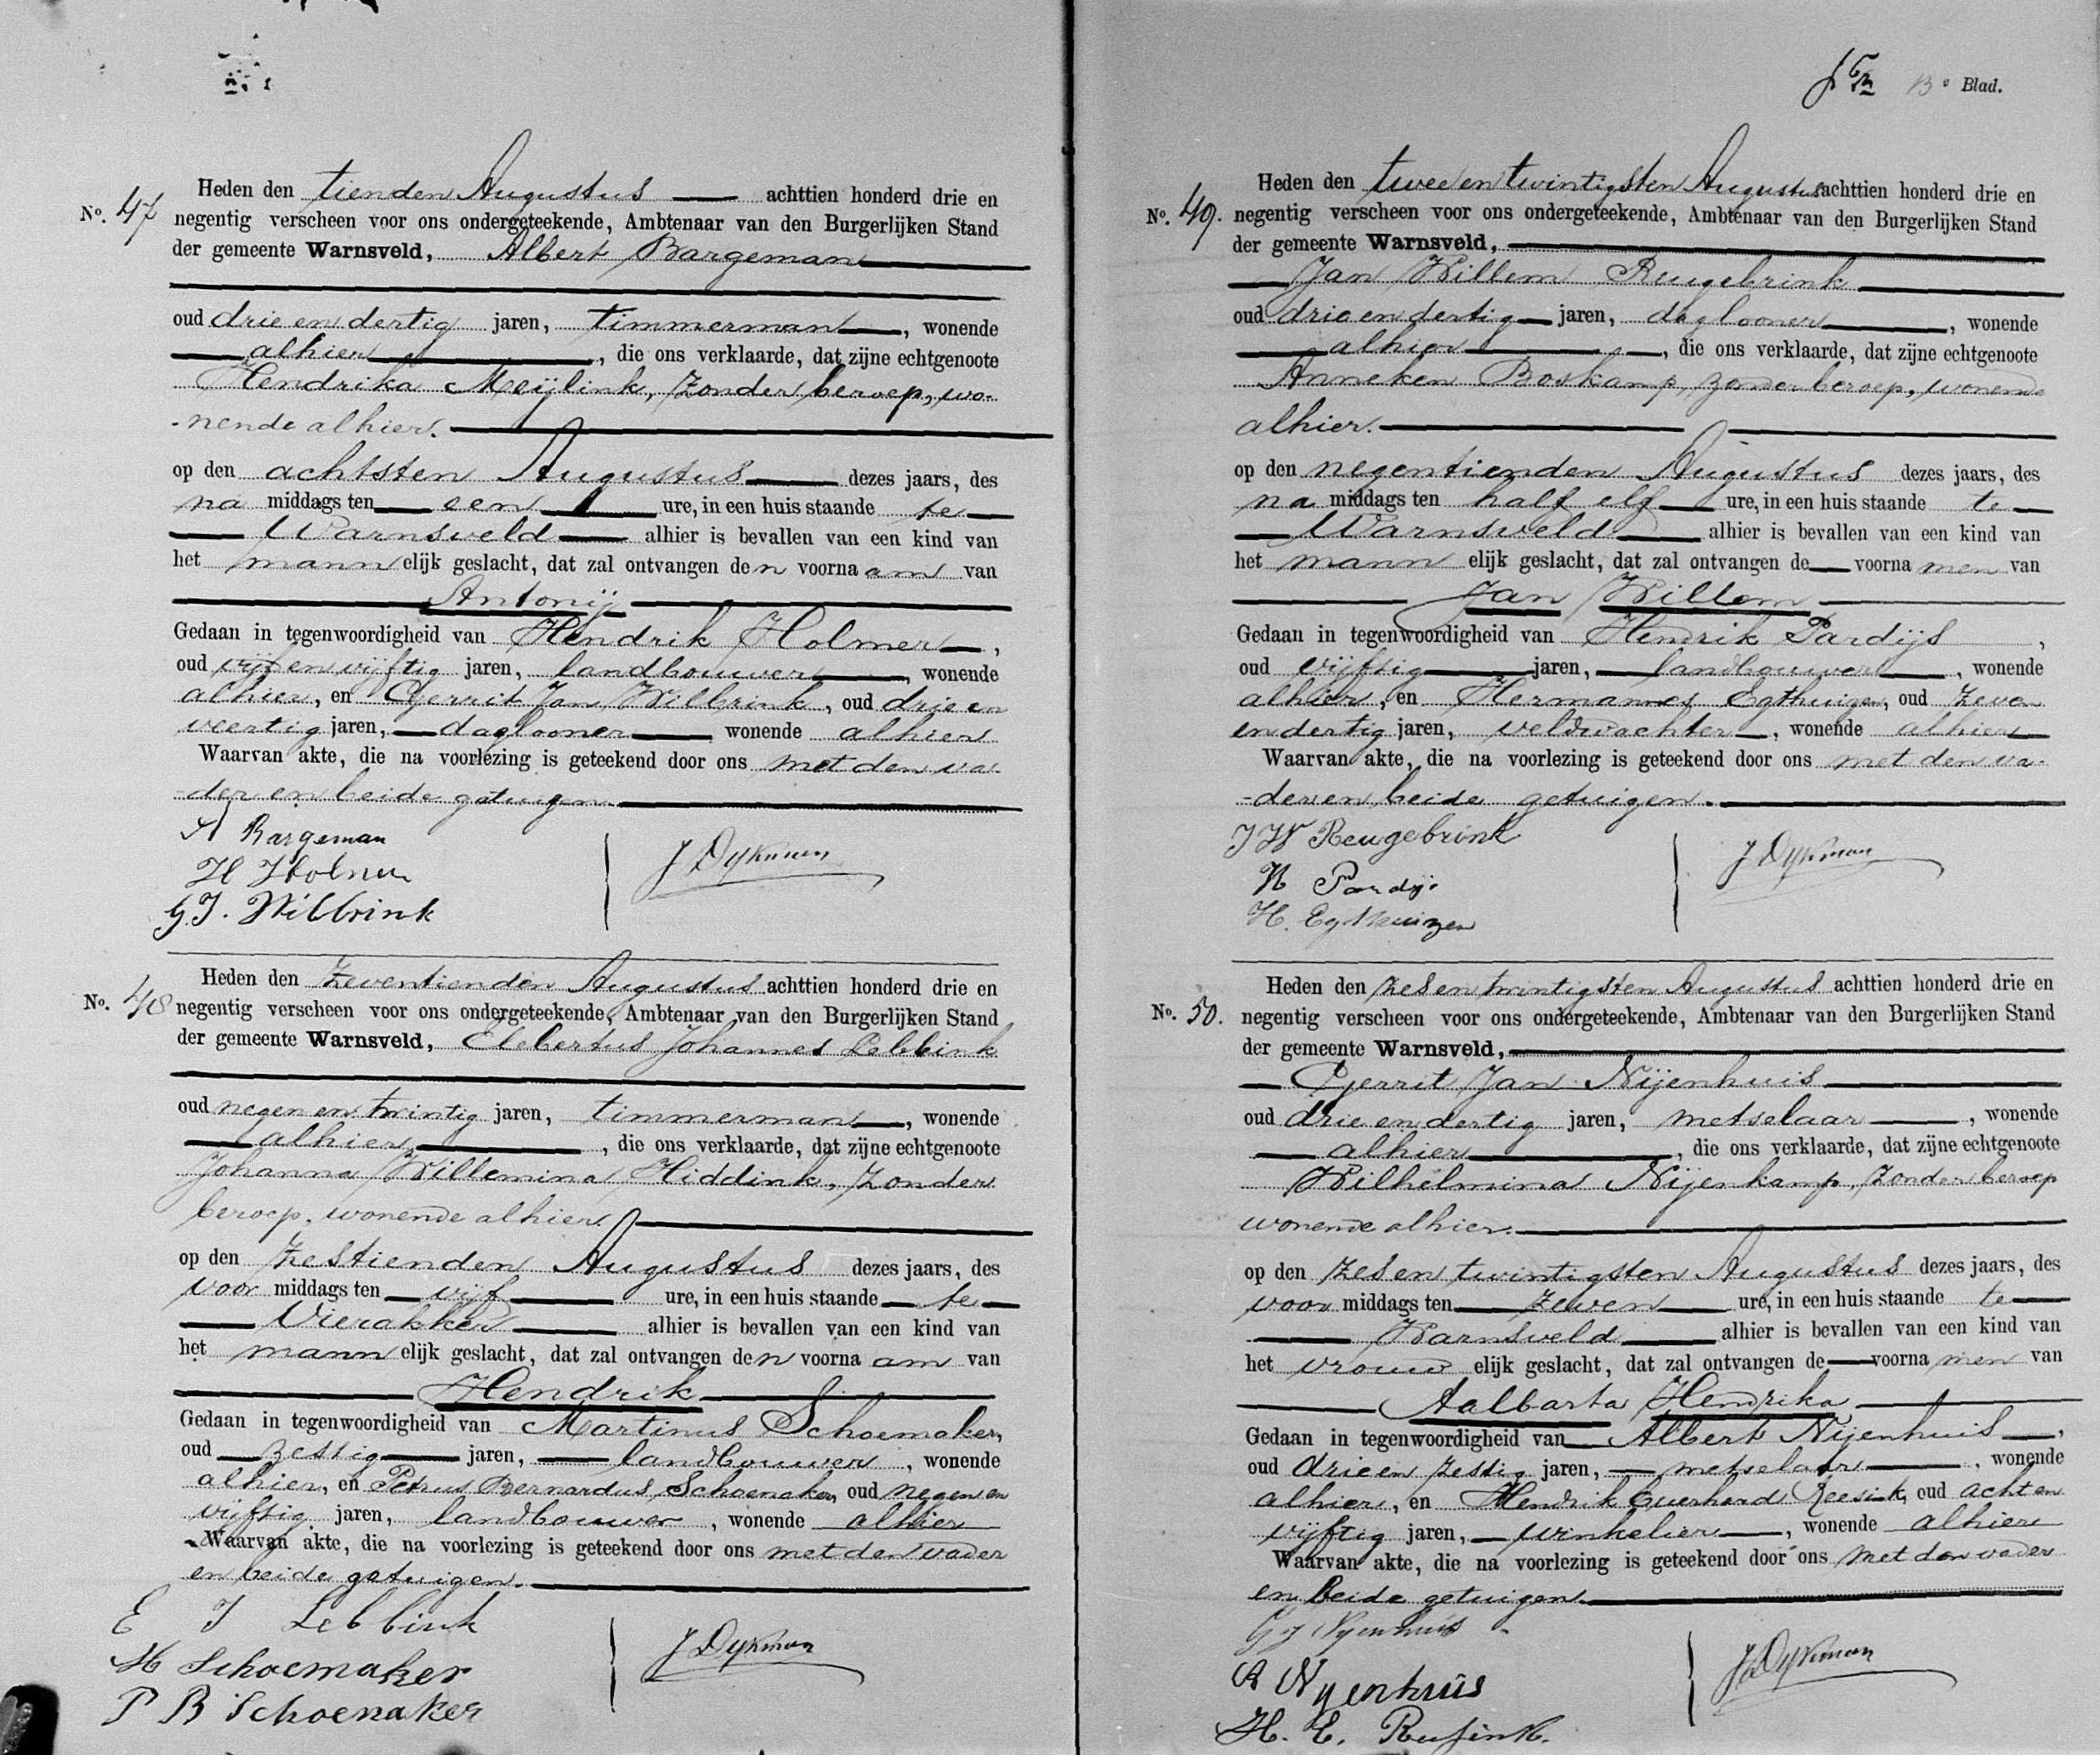 Heden den tienden Augustus achttien honderd drie en
No. 47 negentig verscheen voor ons ondergeteekende, Ambtenaar van den Burgerlijken Stand
der gemeente Warnsveld, Albert Bargeman
oud drie en dertig jaren, timmerman, wonende
alhier, die ons verklaarde, dat zijne echtgenoote
Hendrika Meijlink, zonder beroep, wo-
-nende alhier.
op den achtsten Augustus dezes jaars, des
na middags ten een ure, in een huis staande te
Warnsveld alhier is bevallen van een kind van
het mannelijk geslacht, dat zal ontvangen den voornaam van
Antonij
Gedaan in tegenwoordigheid van Hendrik Holmer,
oud vijf en vijftig jaren, landbouwer, wonende
alhier, en Gerrit Jan Wilbrink, oud drie en
veertig jaren, daglooner wonende alhier
Waarvan akte, die na voorlezing is geteekend door ons met den va-
-der en beide getuigen.
A Bargeman
H Holmer
J Dykman
G.J. Wilbrink
Heden den zeventienden Augustus achttien honderd drie en
No. 48 negentig verscheen voor ons ondergeteekende, Ambtenaar van den Burgerlijken Stand
der gemeente Warnsveld, Elebertus Johannes Lebbink
oud negen en twintig jaren, timmerman, wonende
alhier, die ons verklaarde, dat zijne echtgenoote
Johanna Willemina Hiddink, zonder
beroep, wonende alhier.
op den zestienden Augustus dezes jaars, des
voor middags ten vijf ure, in een huis staande te
Vierakker alhier is bevallen van een kind van
het mannelijk geslacht, dat zal ontvangen den voornaam van
Hendrik
Gedaan in tegenwoordigheid van Martinus Schoemaker,
oud zestig jaren, landbouwer, wonende
alhier, en Petrus Bernardus Schoenaker, oud negen en
vijftig jaren, landbouwer, wonende alhier
Waarvan akte, die na voorlezing is geteekend door ons met den vader
en beide getuigen.
E J Lebbink
M Schoemaker
J Dykman
P B Schoenaker
13e Blad.
Heden den twee en twintigsten Augustus achttien honderd drie en
No. 49. negentig verscheen voor ons ondergeteekende, Ambtenaar van den Burgerlijken Stand
der gemeente Warnsveld,
Jan Willem Reugebrink
oud drie en dertig jaren, daglooner, wonende
alhier, die ons verklaarde, dat zijne echtgenoote
Anneken Boskamp, zonder beroep, wonende
alhier.
op den negentienden Augustus dezes jaars, des
na middags ten half elf ure, in een huis staande te
Warnsveld alhier is bevallen van een kind van
het mannelijk geslacht, dat zal ontvangen de voornamen van
Jan Willem
Gedaan in tegenwoordigheid van Hendrik Pardijs,
oud vijftig jaren, landbouwer, wonende
alhier, en Hermannes Egthuizen, oud zeven
en dertig jaren, veldwachter, wonende alhier
Waarvan akte, die na voorlezing is geteekend door ons met den va-
-der en beide getuigen.
J W Reugebrink
H Pardijs
J Dykman
H. Egthuizen
Heden den zes en twintigsten Augustus achttien honderd drie en
No. 50. negentig verscheen voor ons ondergeteekende, Ambtenaar van den Burgerlijken Stand
der gemeente Warnsveld,
Gerrit Jan Nijenhuis
oud drie en dertig jaren, metselaar, wonende
alhier, die ons verklaarde, dat zijne echtgenoote
Wilhelmina Nijenkamp, zonder beroep
wonende alhier.
op den zes en twintigsten Augustus dezes jaars, des
voor middags ten zeven ure, in een huis staande te
Warnsveld alhier is bevallen van een kind van
het vrouwelijk geslacht, dat zal ontvangen de voornamen van
Aalbarta Hendrika
Gedaan in tegenwoordigheid van Albert Nijenhuis,
oud drie en zestig jaren, metselaar, wonende
alhier, en Hendrik Everhard Reesink, oud acht en
vijftig jaren, winkelier, wonende alhier
Waarvan akte, die na voorlezing is geteekend door ons met den vader
en beide getuigen.
G J Nijenhuis
A Nyenhuis
J Dykman
H. E. Reesink.